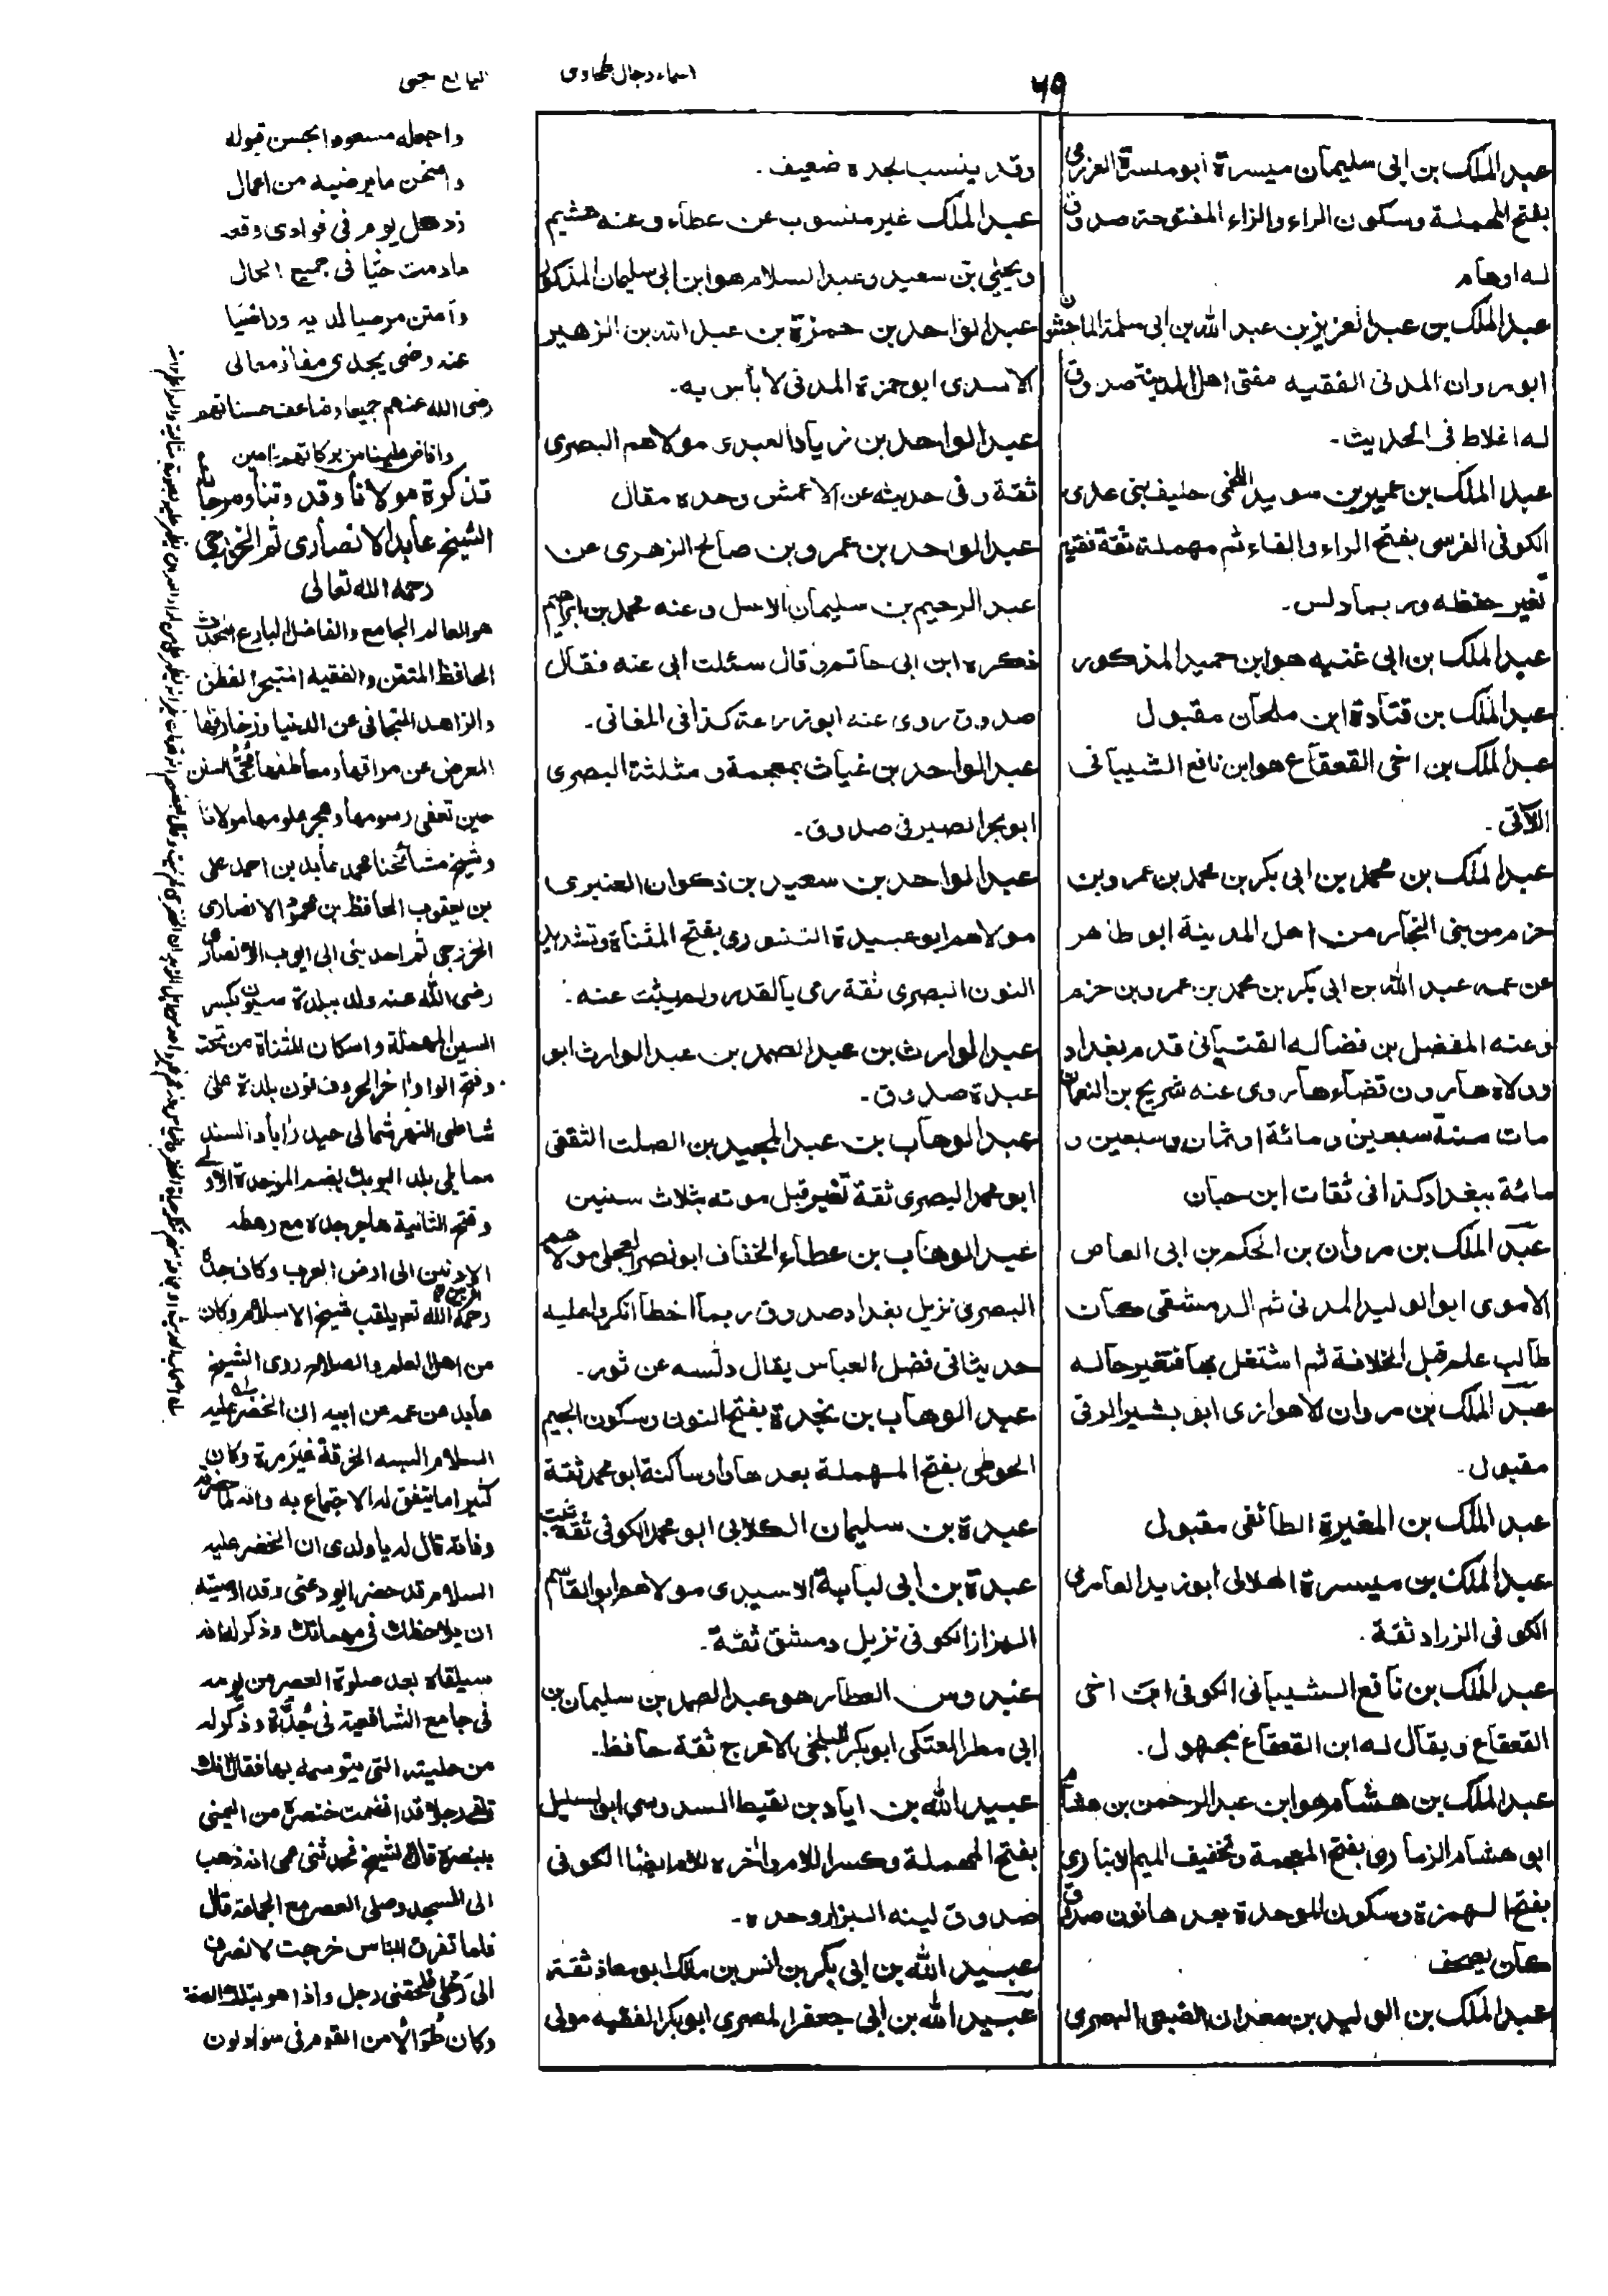 ٧٩
اسماء رجال طحاوی
اليانع جنی
عبد الملك بن ابی سليمان ميسرة ابو ميسرة العرزمی
بفتح المهملة وسكون الراء والزاء المفتوحة صدوق
له اوهام
عبد الملك بن عبد العزيز بن عبد الله بن ابی سلمة الماجشون
ابو مروان المدنی الفقيه مفتی اهل المدينة صدوق
له اغلاط فی الحديث ۔
عبد الملك بن عمير بن سويد اللخمی حليف بنی عدی
الكوفی الفرسی بفتح الراء والفاء ثم مهملة ثقة فقيه
تغير حفظه وربما دلس ۔
عبد الملك بن ابی غنيه هو ابن حميد المذكور
عبد الملك بن قتادة ابن ملحان مقبول
عبد الملك بن اخی القعقاع هو ابن نافع الشيبانی
الآتی ۔
عبد الملك بن محمد بن ابی بكر بن محمد بن عمرو بن
حزم من بنی النجار من اهل المدينة ابو طاهر
عن عمه عبد الله بن ابی بكر بن محمد بن عمرو بن حزم
وعنه المفضل بن فضاله القتبانی قدم بغداد
وولاه هارون قضاءها روی عنه شريح بن النعمان
مات سنة سبعين ومائة او ثمان وسبعين و
مائة ببغداد كذا فی ثقات ابن حبان
عبد الملك بن مروان بن الحكم بن ابی العاص
الاموی ابو الوليد المدنی ثم الدمشقی كان
طالب علم قبل الخلافة ثم اشتغل بها فتغير حاله
عبد الملك بن مروان لاهوازی ابو بشير الرقی
مقبول ۔
عبد الملك بن المغيرة الطائفی مقبول
عبد الملك بن ميسرة الهلالی ابو زيد العامری
الكوفی الزراد ثقة ۔
عبد الملك بن نافع الشيبانی الكوفی ابن اخی
القعقاع ويقال له ابن القعقاع مجهول ۔
عبد الملك بن هشام هو ابن عبد الرحمن بن هشام
ابو هشام الذماری بفتح المعجمة وتخفيف الميم الابناری
بفتح الهمزة وسكون الموحدة بعدها نون صدوق
كان يصحف
عبد الملك بن الوليد بن معدان الضبعی البصری
وقد ينسب لجده ضعيف ۔
عبد الملك غير منسوب عن عطاء وعنه هشيم
ويحيٰی بن سعيد وعبد السلام هو ابن ابی سليمان المذكور
عبد الواحد بن حمزة بن عبد الله بن الزهير
الاسدی ابو حمزة المدنی لا بأس به ۔
عبد الواحد بن زياد العبدی مولاهم البصری
ثقة وفی حديثه عن الاعمش وحده مقال
عبد الواحد بن عمرو بن صالح الزهری عن
عبد الرحيم بن سليمان الاسل وعنه محمد بن ابراهيم
ذكره ابن ابی حاتم وقال سئلت ابی عنه فقال
صدوق روی عنه ابو زرعة كذا فی المغانی ۔
عبد الواحد بن غياث بمعجمة ومثلثة البصری
ابو بحر الصيرفی صدوق ۔
عبد الواحد بن سعيد بن ذكوان العنبری
مولاهم ابو عبيدة التنوری بفتح المثناة وتشديد
النون البصری ثقة رمی بالقدر ولم يثبت عنه ۔
عبد الوارث بن عبد الصمد بن عبد الوارث ابو
عبدة صدوق ۔
عبد الوهاب بن عبد المجيد بن الصلت الثقفی
ابو محمد البصری ثقة تغير قبل موته بثلاث سنين
عبد الوهاب بن عطاء الخفاف ابو نصر العجلی مولاهم
البصری نزيل بغداد صدوق ربما اخطأ انكروا عليه
حديثا فی فضل العباس يقال دلسه عن ثور ۔
عبد الوهاب بن نجدة بفتح النون وسكون الجيم
الحوطی بفتح المهملة بعدها واو ساكنة ابو محمد ثقة
عبدة بن سليمان الكلابی ابو محمد الكوفی ثقة ثبت
عبدة بن ابی لبابة الاسيدی مولاهم ابو القاسم
البزاز الكوفی نزيل دمشق ثقة ۔
عبدوس العطار هو عبد الصمد بن سليمان بن
ابی مطر العتكی ابو بكر البلخی الاعرج ثقة حافظ ۔
عبيد الله بن اياد بن لقيط السدوسی ابو السليل
بفتح المهملة وكسر اللام واٰخره لام ايضا الكوفی
صدوق لينه البزار وحده ۔
عبيد الله بن ابی بكر بن انس بن مالك ابو معاذ ثقة
عبيد الله بن ابی جعفر المصری ابو بكر الفقيه مولی
واجعله مسعودا بحسن قبوله
وامنحن ما يرضيه من اعمال
زدهل يوم فی فوادی وقعه
مادمت حيًا فی جميع الحال
وأمتن مرضيا لديه وراضيًا
عنه رضی يجدی مفاذ معالی
رضی الله عنهم جميعا وضاعف حسناتهم
وافاض علينا من بركاتهم اٰمين
تذكرة مولانا وقدوتنا ومرجانا
الشيخ عابد الانصاری ثم الخزرجی
رحمه الله تعالی
هو العالم الجامع والفاضل البارع المحدث
الحافظ المتقن والفقيه المتبحر الفطن
والزاهد المتجافی عن الدنيا وزخارفها
المعرض عن مراقها ومعاطفها محی السنن
حين تعفی رسومها وهجر علومها مولانا
وشيخ مشائخنا محمد عابد بن احمد علی
بن يعقوب الحافظ بن محمود الانصاری
الخزرجی ثم احد بنی ابی ايوب الانصاری
رضی الله عنه ولد ببلدة سيون بكسر
السين المهملة واسكان المثناة من تحت
وفتح الواو اٰخر الحروف نون بلدة علی
شاطی النهر شمالی حيدر اٰباد السند
مما يلی بلد البوبك بضم الموحدة الاولی
وفتح الثانية هاجر جده مع رهطه
الاردنين الی ارض العرب وكان جده
رحمه الله تم يلقب بشيخ الاسلام وكان
من اهل العلم والصلاح روی الشيخ
عابد عن عمه عن ابيه ان الخضر عليه
السلام البسه الخرقة غير مرة وكان
كثيرا ما يتفق له الاجتماع به وانه لما حضرته
وفاته قال له يا ولدی ان الخضر عليه
السلام قد حضر ليودعنی وقد اوصيته
ان يلاحظك فی مهماتك وذكر له انه
سيلقاه بعد صلوة العصر من يومه
فی جامع الشافعية فی جُدَّة وذكر له
من حليته التی يتوسمه بها فقال انك
تلقی رجلا قد انضمت خنصره من اليمنی
ببنصره قال الشيخ فحدثنی عمی انه ذهب
الی المسجد وصلی العصر مع الجماعة قال
فلما تفرق الناس خرجت لانصرف
الی رحلی فلحقنی رجل واذا هو بتلك الصفة
وكان طُوَالًا من القوم فی سواد لون